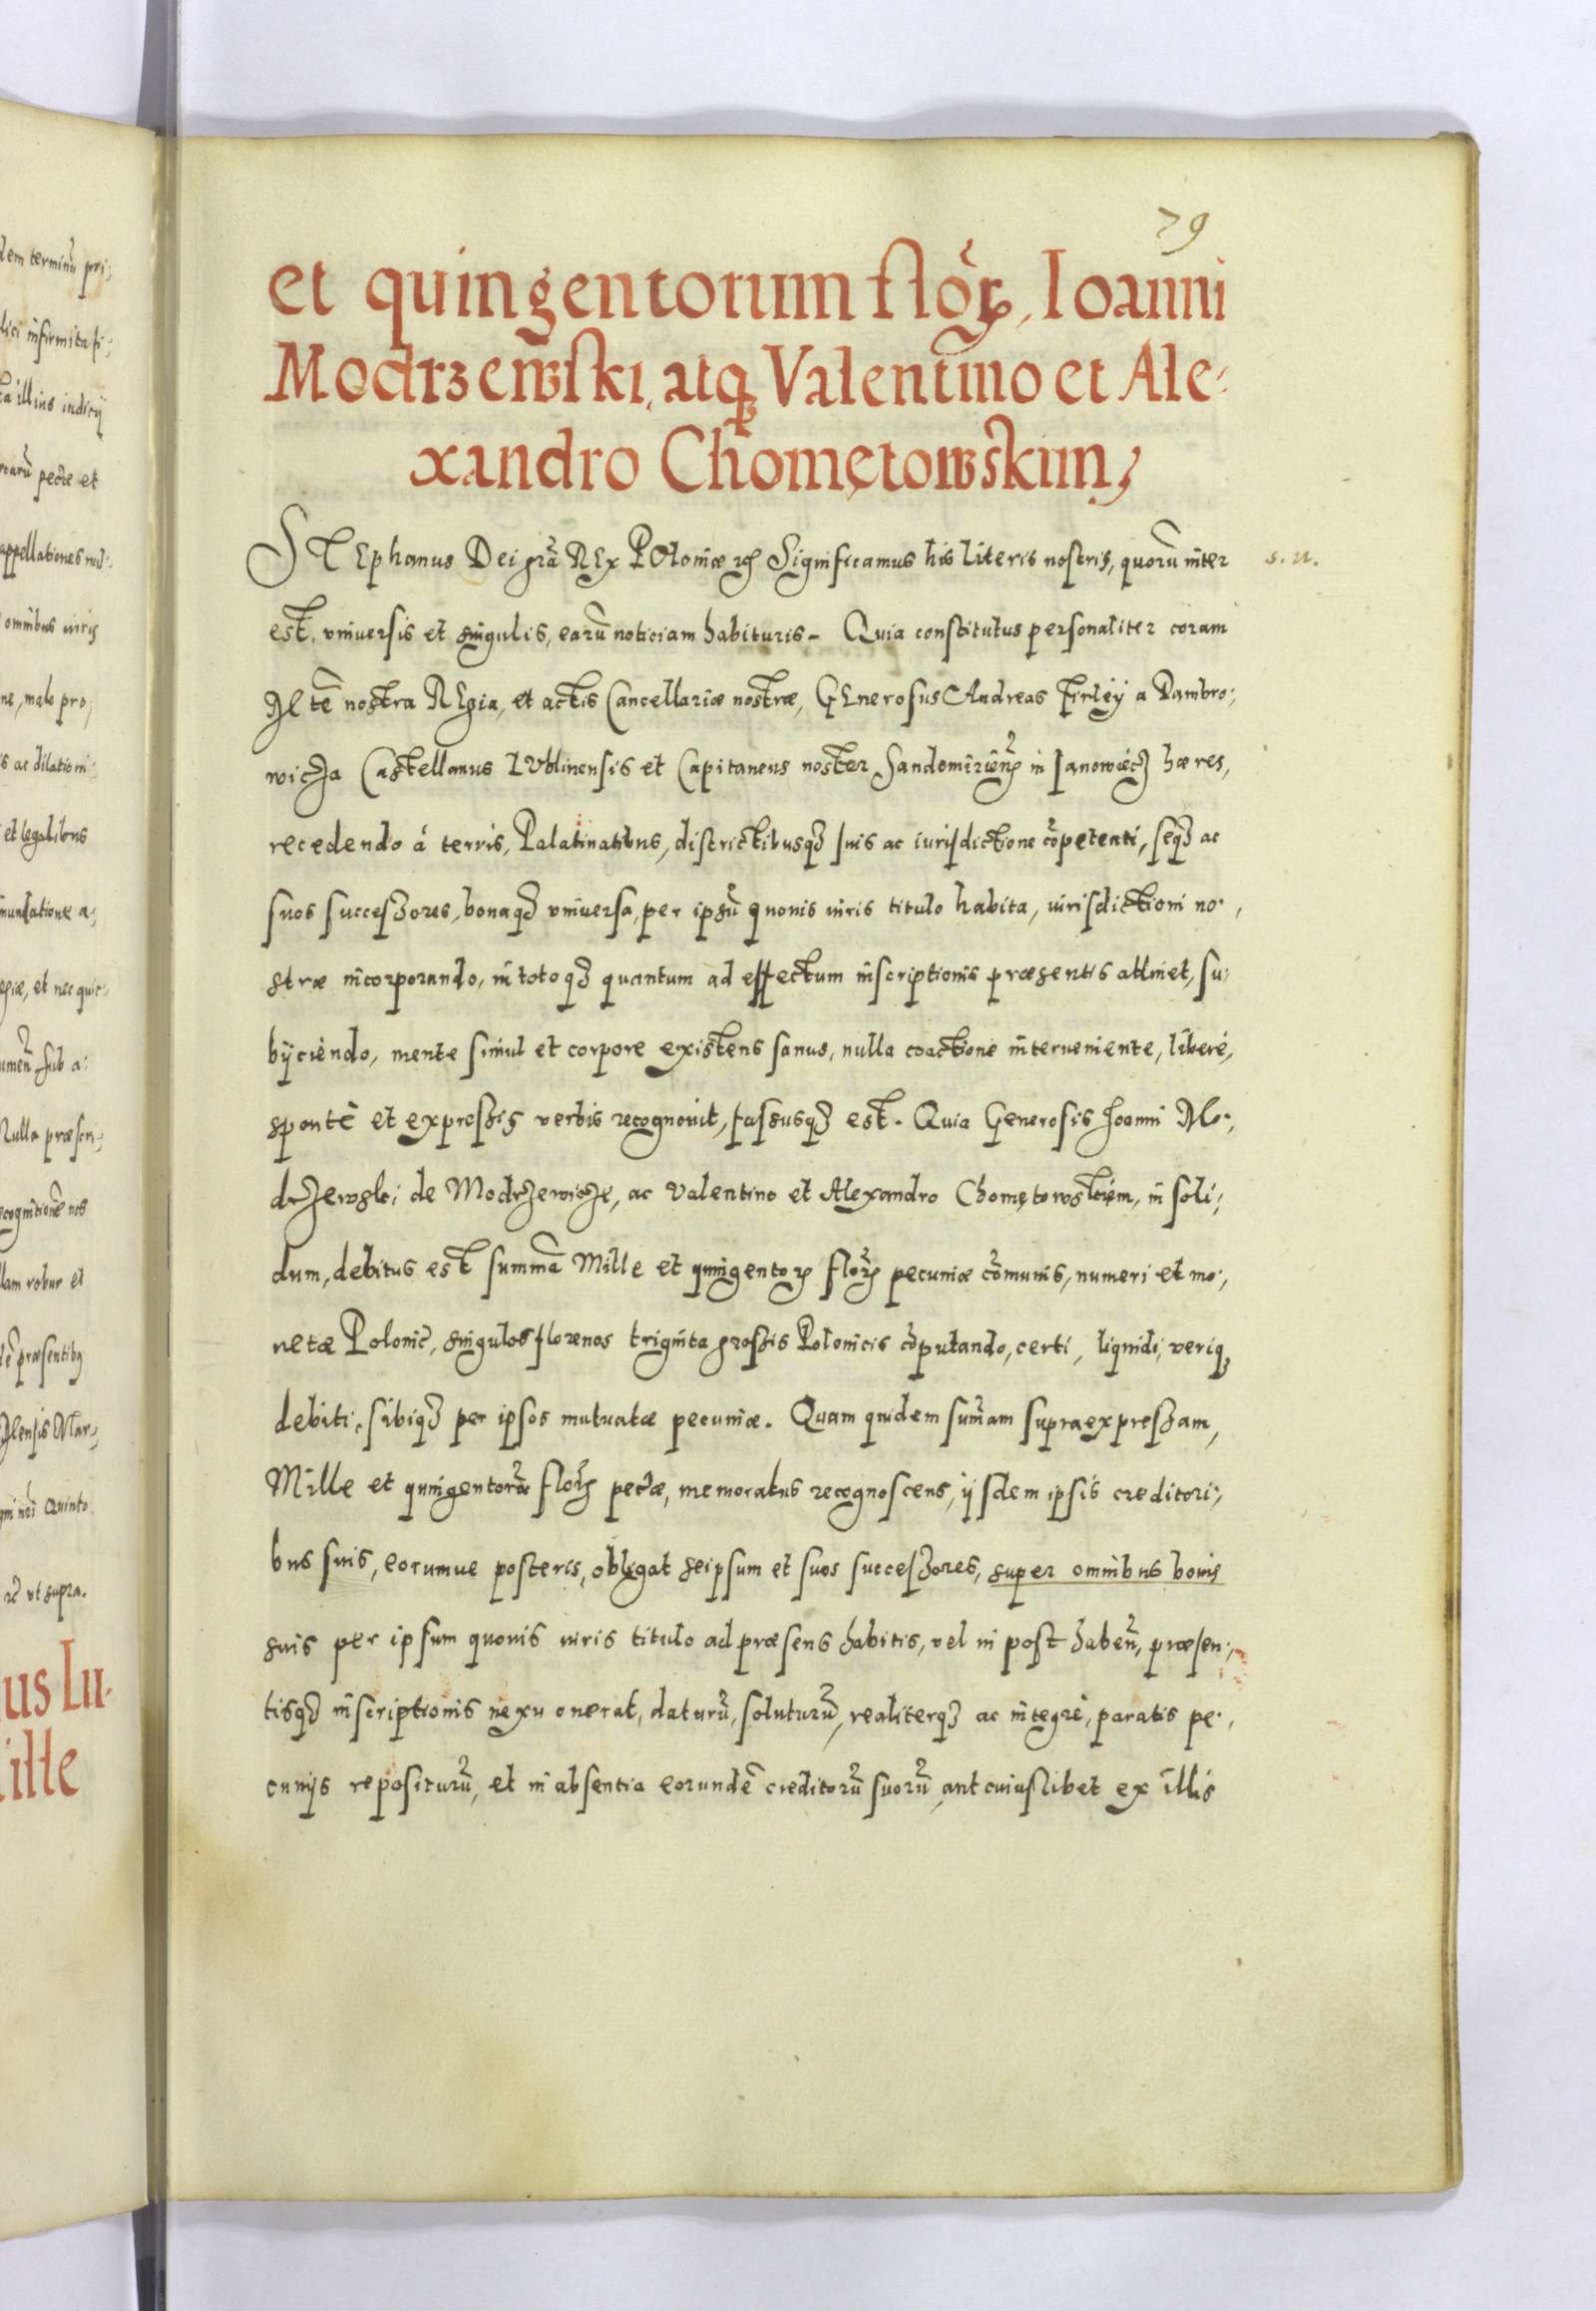 79
et quingentorum flōꝝ, Ioanni
Modrzewski, atq́ꝫ Valentino et Ale:
xandro Chomętowskim,
STEphanus Dei grã REx POloniæ ꝛc̃ Significamus his literis nostris, quorũ inter
s. n.
est. vniuersis et singulis, earũ noticiam habituris. Quia constitutus personaliter coram
Mtẽ nostra REgia, et actis Cancellariæ nostræ, GEnerosus Andreas Firleÿ a Dambro:
wicza Castellanus LVblinensis et Capitaneus noster Sandomirieñ in Janowiecz hæres,
recedendo á terris, Palatinatibus, districtibusqꝫ suis ac iurisdictione cõpetenti, seqꝫ ac
suos successores, bonaqꝫ vniuersa, per ipsũ quouis iuris titulo habita, iurisdictioni no:
stræ incorporando, in totoqꝫ quantum ad effectum inscriptionis præsentis attinet, su:
bÿciendo, mente simul et corpore existens sanus, nulla coactione interueniente, liberè,
spontè et expressis verbis recognouit, fassusqꝫ est. Quia Generosis Joanni Mo:
drzewski de Modrzewicze, ac Valentino et Alexandro Chomętowskiem, in soli:
dum, debitus est summã Mille et quingentoꝝ floꝝ pecuniæ cõmunis, numeri et mo:
netæ Polonic̃, singulos florenos triginta grossis Polonicis cõputando, certi, liquidi, veriqꝫ
debiti, sibiqꝫ per ipsos mutuatæ pecuniæ. Quam quidem sum̃am supraexpressam,
Mille et quingentorũ floꝝ pec̃æ, memoratus recognoscens, ÿsdem ipsis creditori:
bus suis, eorumue posteris, obligat seipsum et suos successores, super omnibus bonis
suis per ipsum quouis iuris titulo ad præsens habitis, vel in post habeñ, præsen:
tisqꝫ inscriptionis nexu onerat, daturũ, soluturũ, realiterqꝫ ac integrè, paratis pe:
cunijs repositurũ, et in absentia eorundẽ creditorũ suorũ, aut cuiuslibet ex illis